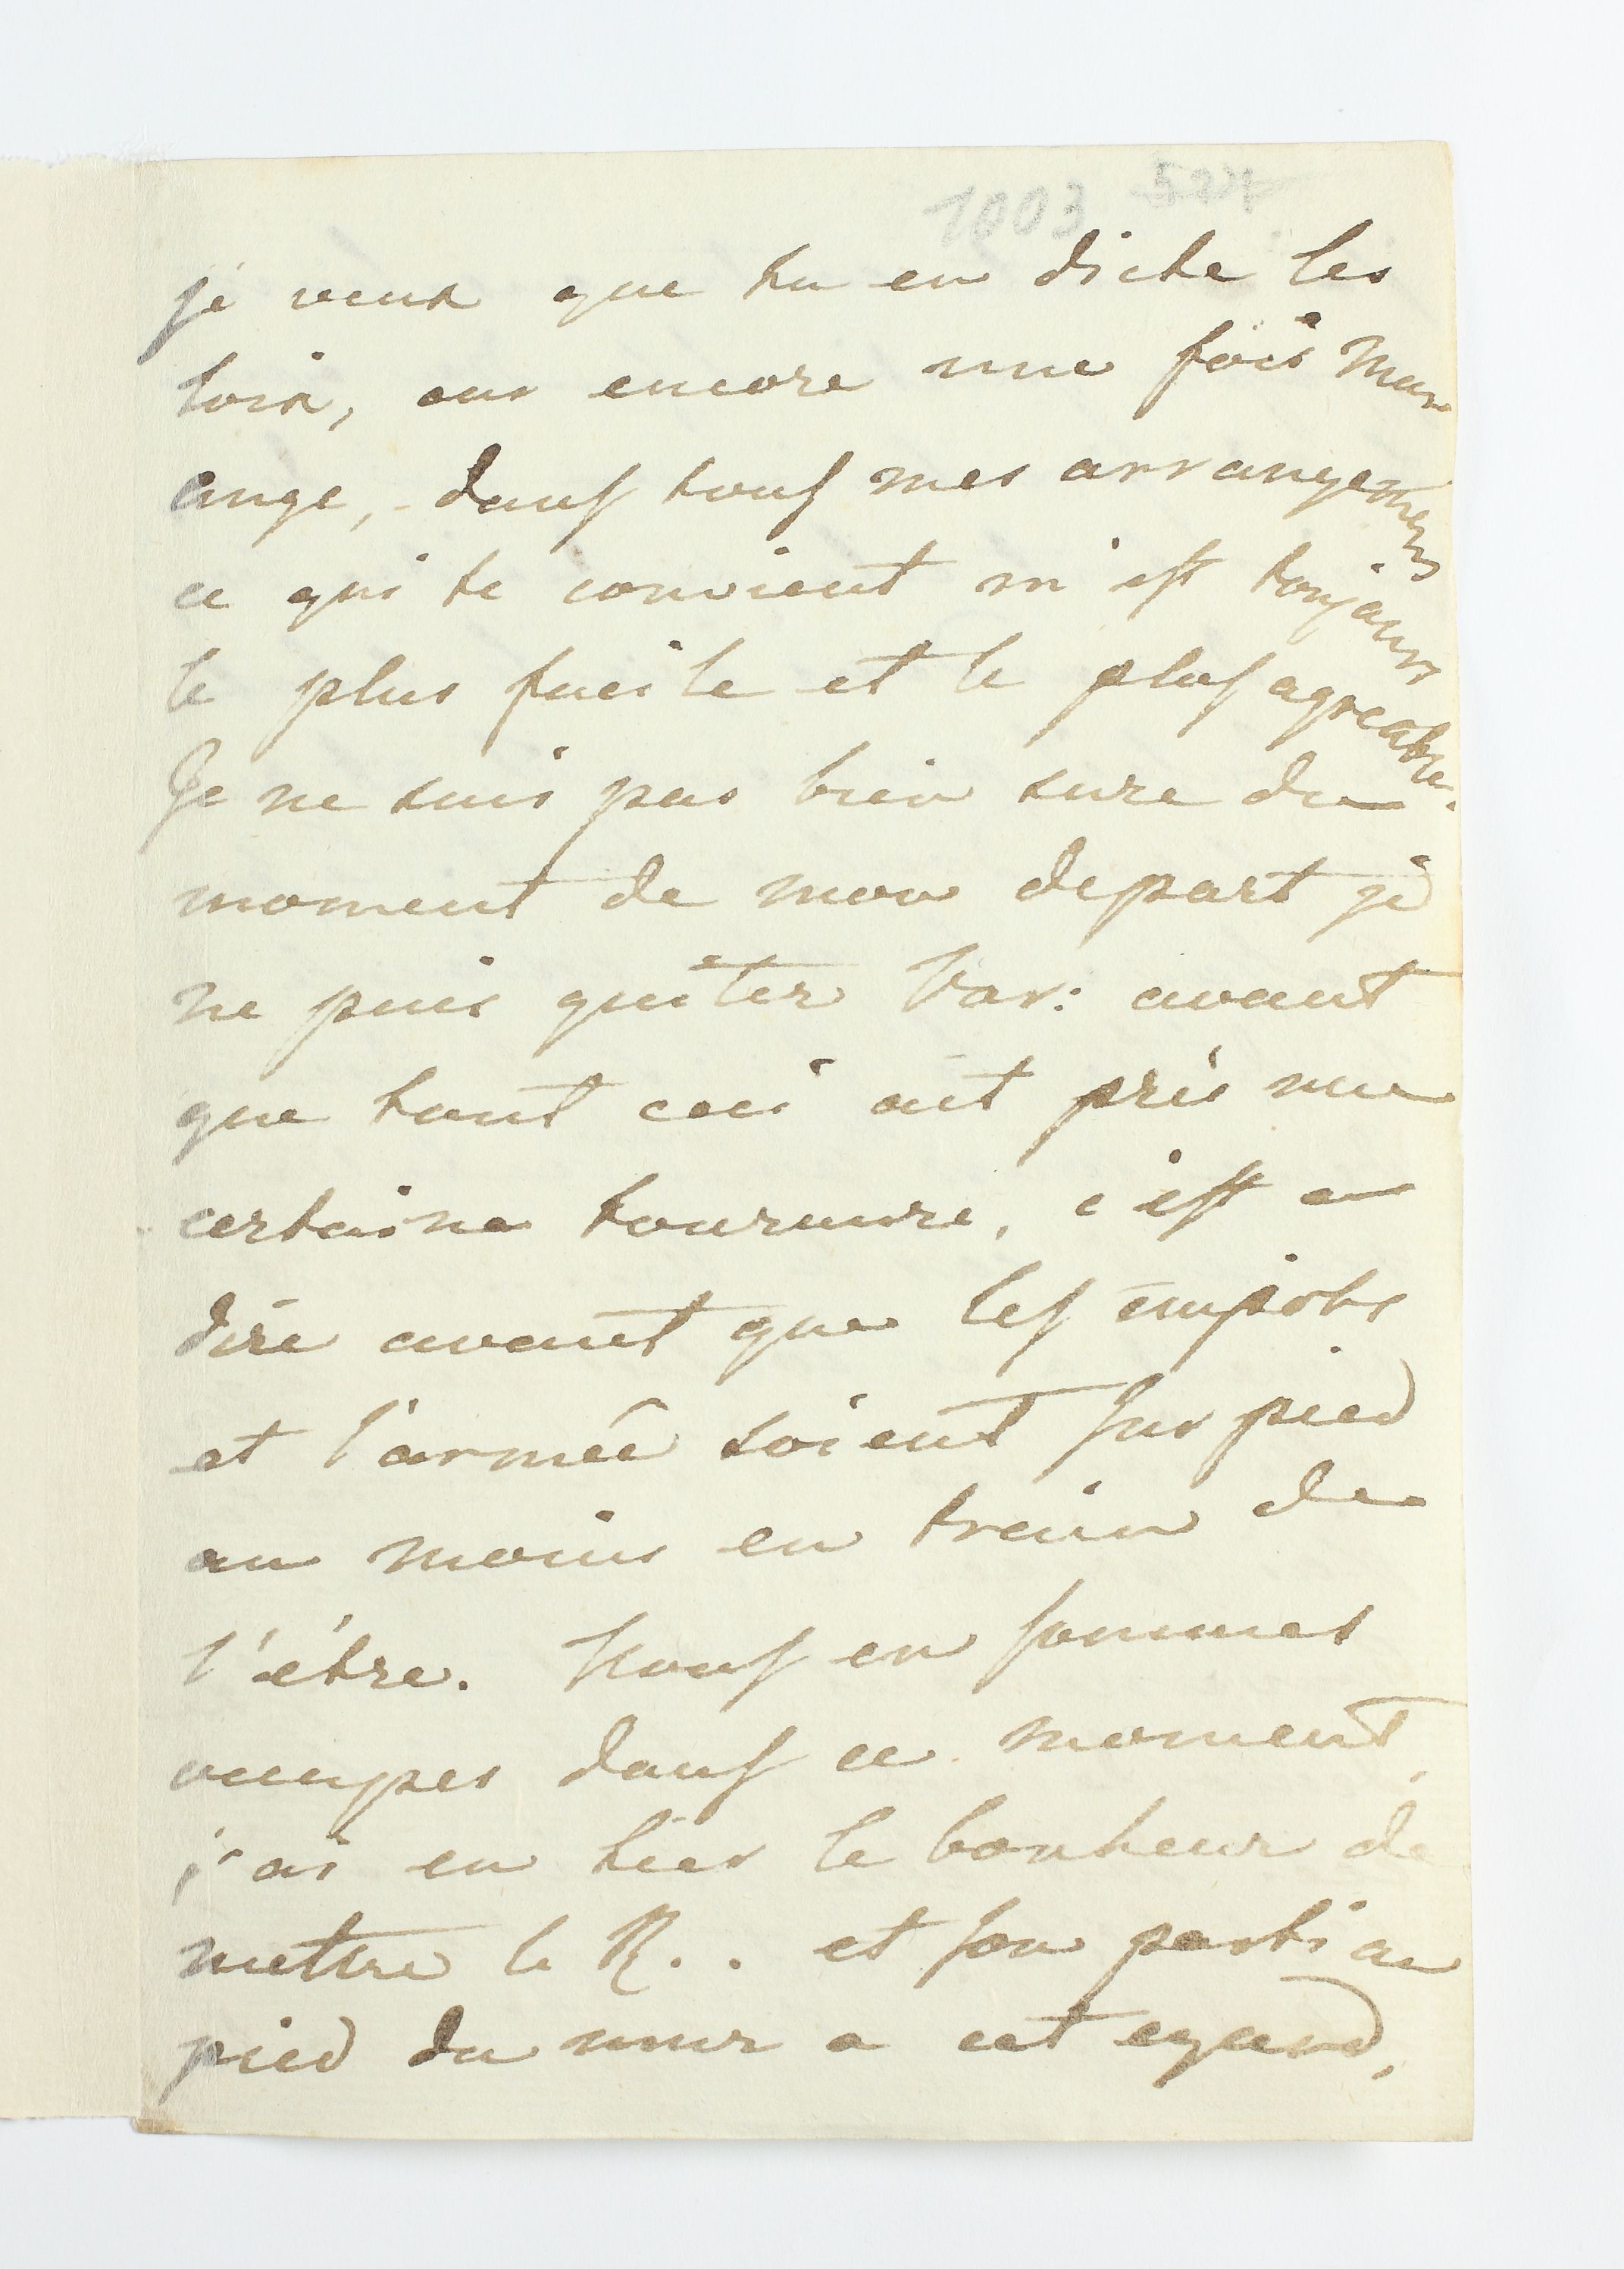 1003 524
je veux que tu en dicte les
loix, car encore une fois mon
ange, dans tous mes arrangemens
ce qui te convient m'est toujours
le plus facile et le plus agreable.
Je ne suis pas bien sure du
moment de mon depart je
ne puis quiter Var: avant
que tout ceci ait pris une
certaine tournure, c'est a
dire avant que les impots
et l'armée soient sur pied
au moins en train de
l'être. Nous en sommes
occupes dans ce moment,
j'ai eu hier le bonheur de
mettre le R.. et son parti au
pied du mur a cet egard,